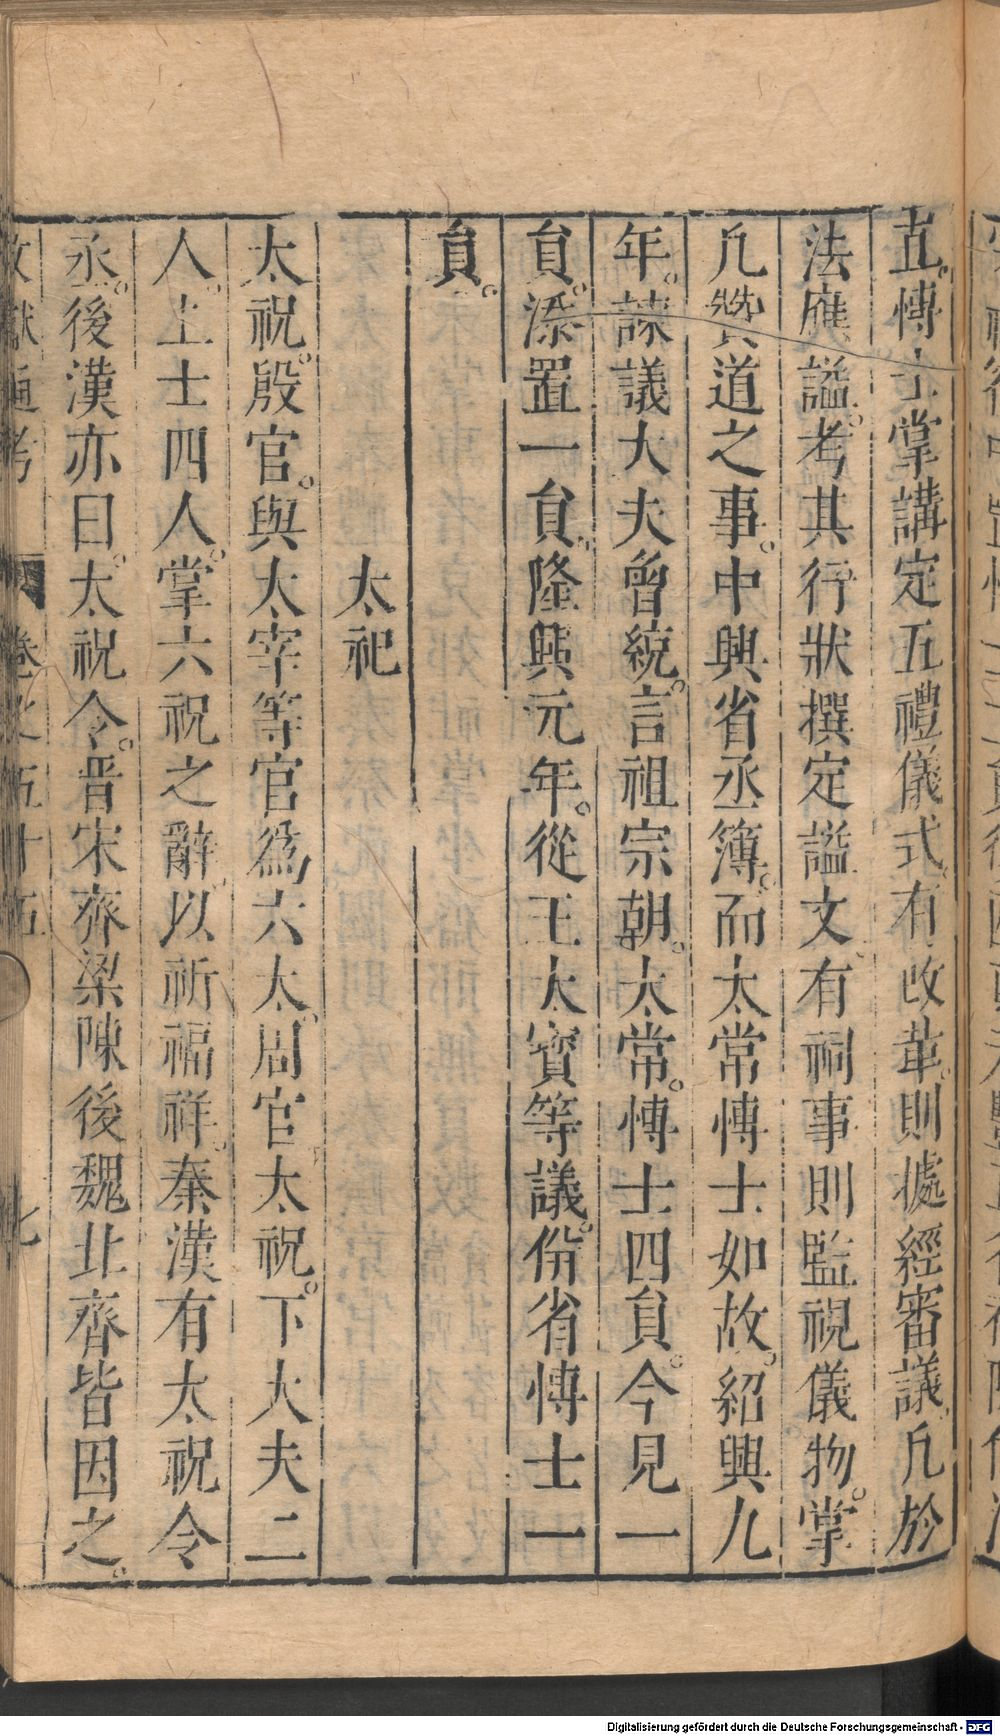 五博士掌講定五禮儀式有改革則據經審議凡於
法應謚考其行狀撰定謚文有祠事則監視儀物掌
凡贊道之事中興省丞簿而太常博士如故紹興九
年諫議大夫曾統言祖宗朝太常博士四貟今見一
貟添置一貟隆興元年從王大寳等議併省博士一
貟
太祀
太祝殷官與太宰等官爲六太周官太祝下大夫二
人上士四人掌六祝之辭以祈福祥秦漢有太祝令
丞後漢亦曰太祝令晋宋齊梁陳後魏北齊皆因之
文獻通考 卷之五十五 七
Digitalisierung gefördert durch die Deutsche Forschungsgemeinschaft - DFG